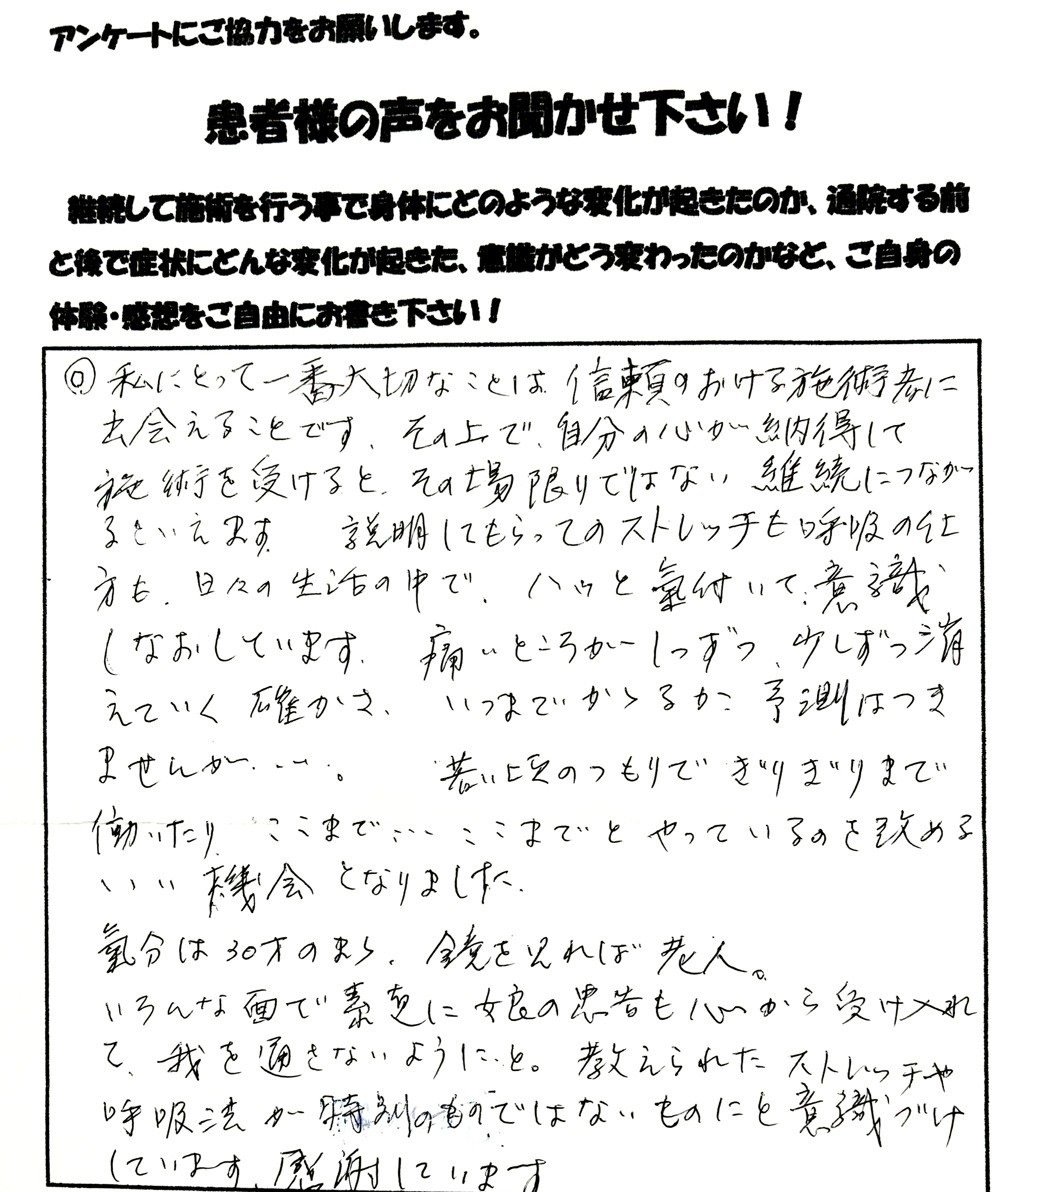 アンケートにご協力をお願いします。
患者様の声をお聞かせ下さい！
継続して施術を行う事で身体にどのような変化が起きたのか、通院する前
と後で症状にどんな変化が起きた、意識がどう変わったのかなど、ご自身の
体験・感想をご自由にお書き下さい！
◎私にとって一番大切なことは信頼のおける施術者に
出会えることです、その上で、自分の心が納得して
施術を受けると、その場限りではない継続につなが
るといえます 説明してもらってのストレッチも呼吸の仕
方も、日々の生活の中で、ハッと氣付いて、意識
しなおしています、痛いところが一つずつ、少しずつ消
えていく確かさ、いつまでかかるか予測はつき
ませんが……。若い頃のつもりでぎりぎりまで
働いたり、ここまで…ここまでとやっているのを改める
いい機会となりました、
氣分は30才のまま、鏡を見れば老人。
いろんな面で素直に娘の忠告も心から受け入れ
て、我を通さないようにと。教えられたストレッチや
呼吸法が特別のものではないものにと意識づけ
しています、感謝しています